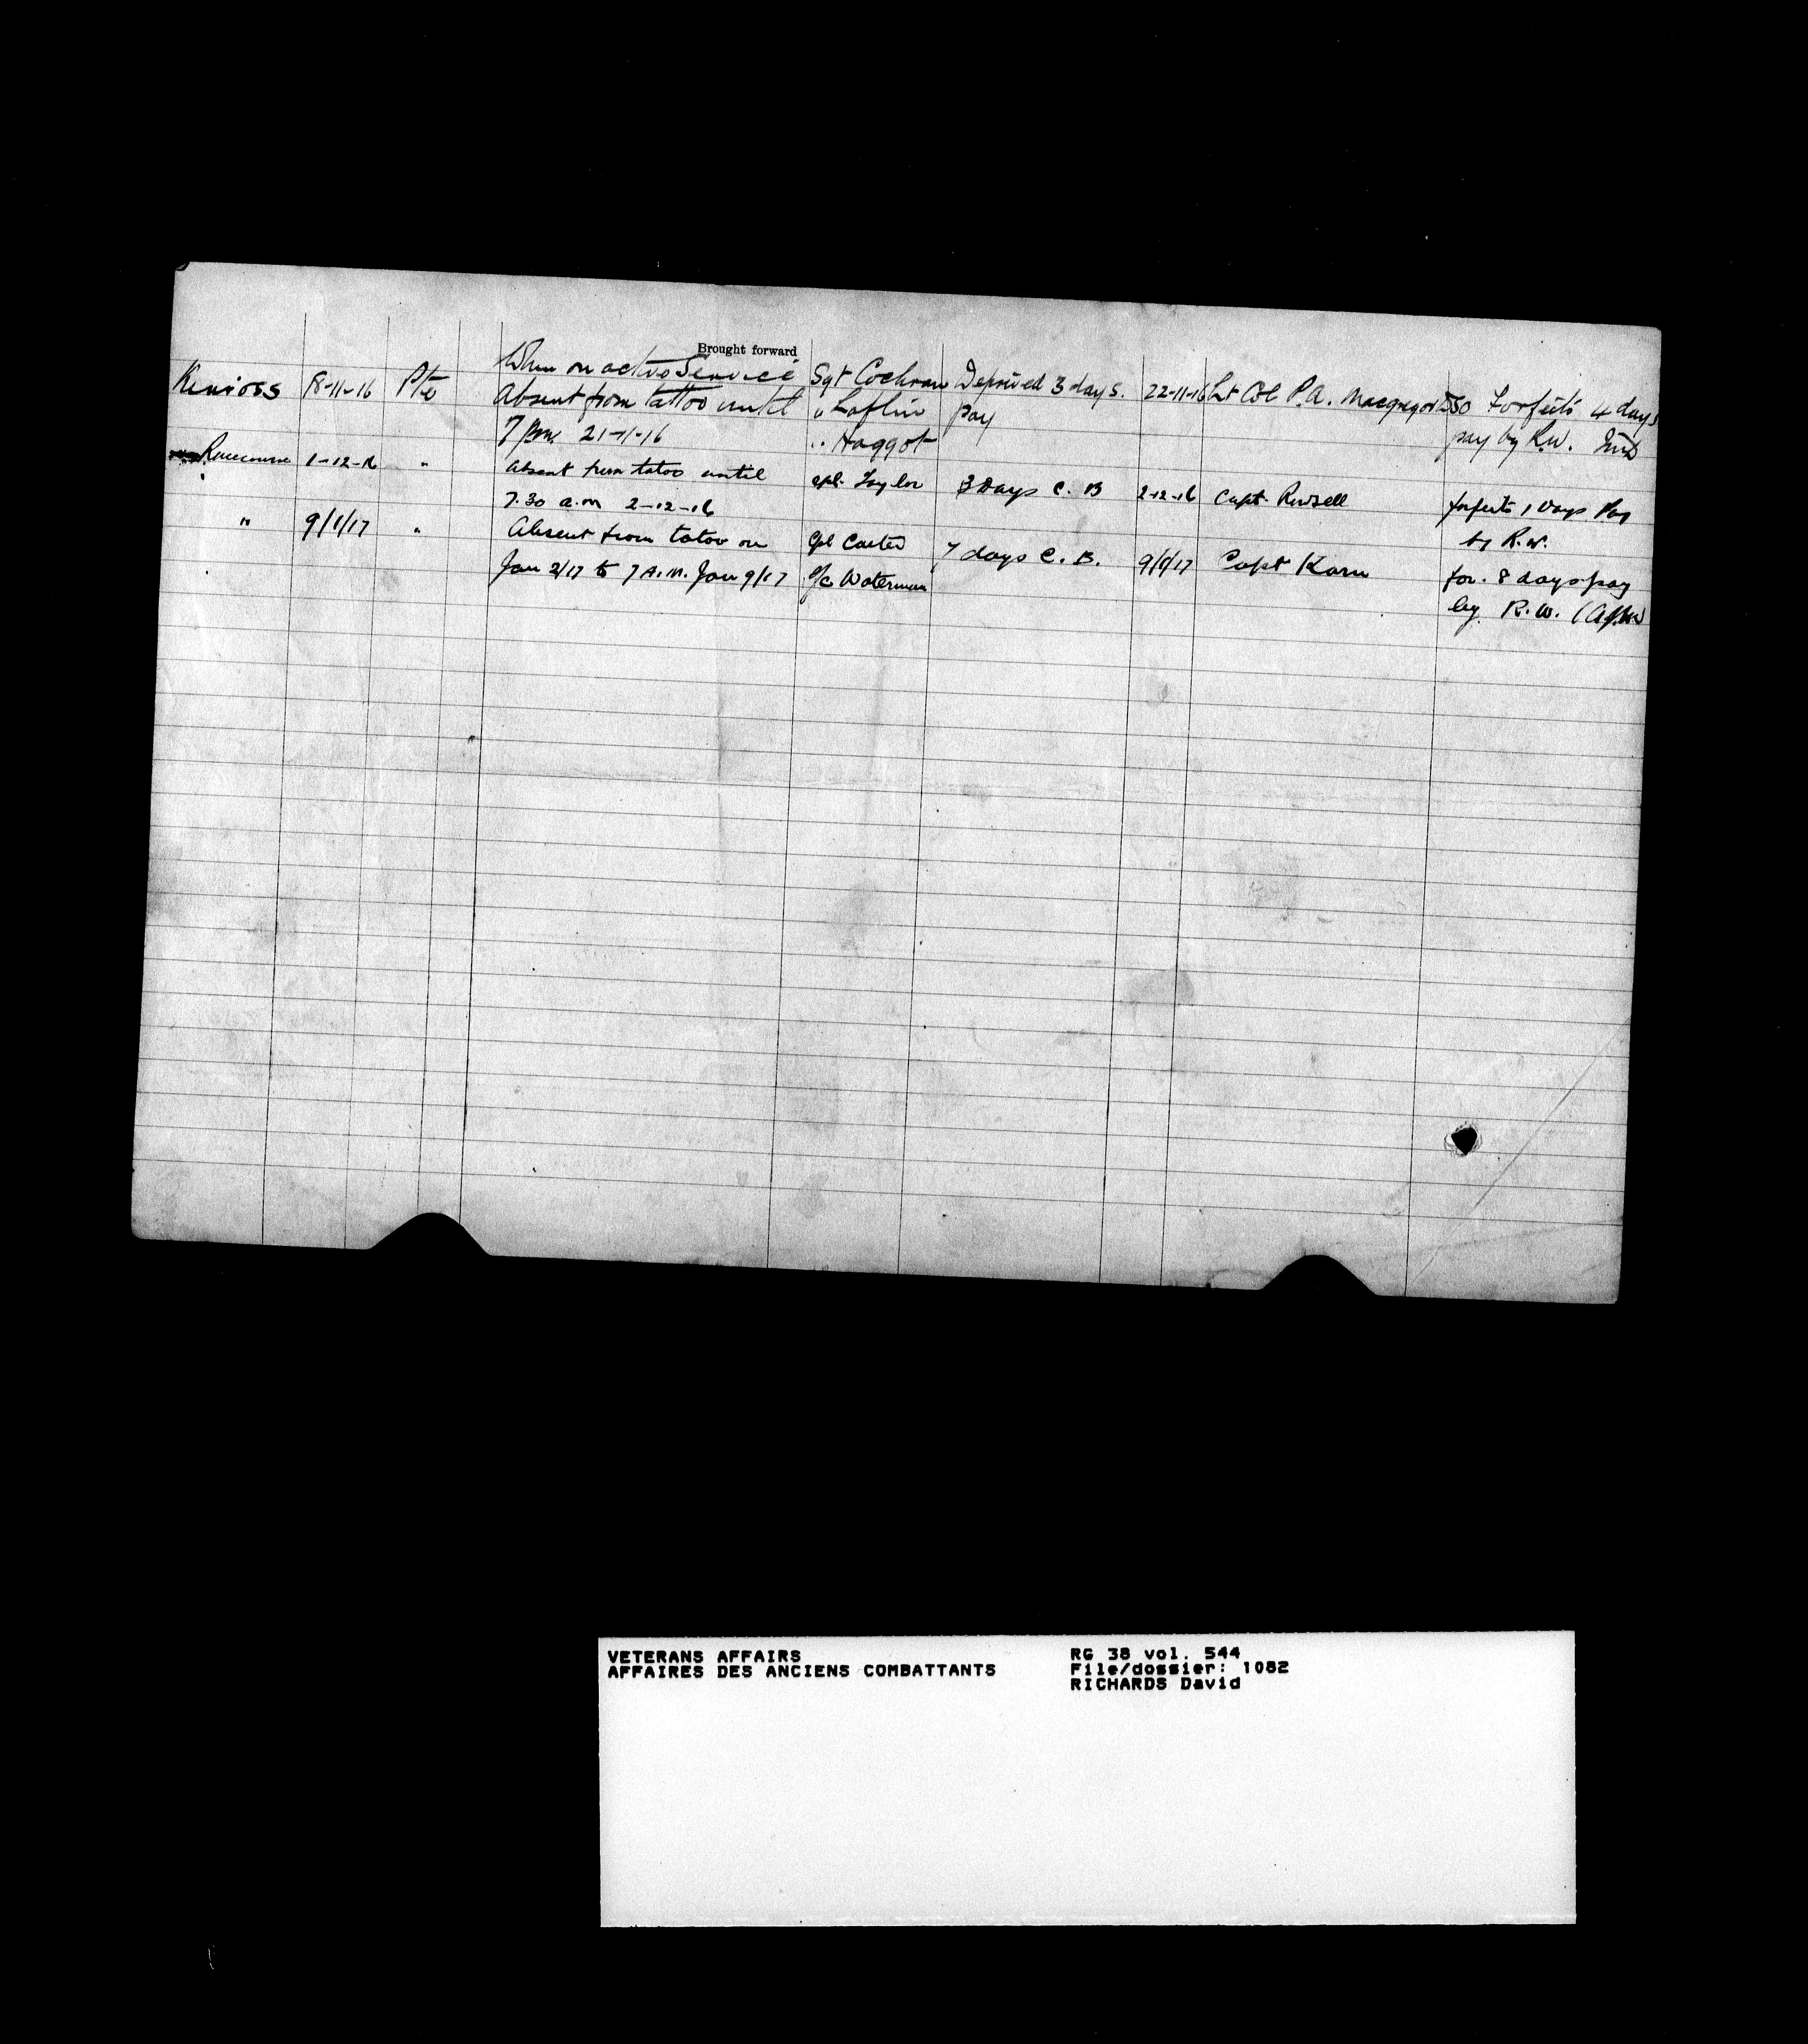 Brought forward
When on active Service
Kinross 18-11-16 Pte Absent from tattoo until Sgt Cochran Deprived 3 days. 22-11-16 Lt Col P.A. Macgregor DSO Forfeits 4 days
7 pm 21-11-16 " Laflin pay pay by R.W.
" Haggot
Racecourse 1-12-16 " Absent from tatoo until Cpl. Taylor 3 Days C. B 2-12-16 Capt. Russell forfeits 1 Days Pay
7.30 a.m 2-12-16 by R.W.
" 9/1/17 " Absent from tatoo on Cpl Carter 7 days C. B. 9/1/17 Capt Karn for. 8 days pay
Jan 2/17 to 7 A.M. Jan 9/17 Waterman by R. W.
VETERANS AFFAIRS
AFFAIRES DES ANCIENS COMBATTANTS
RG 38 vol. 544
File/dossier: 1082
RICHARDS David